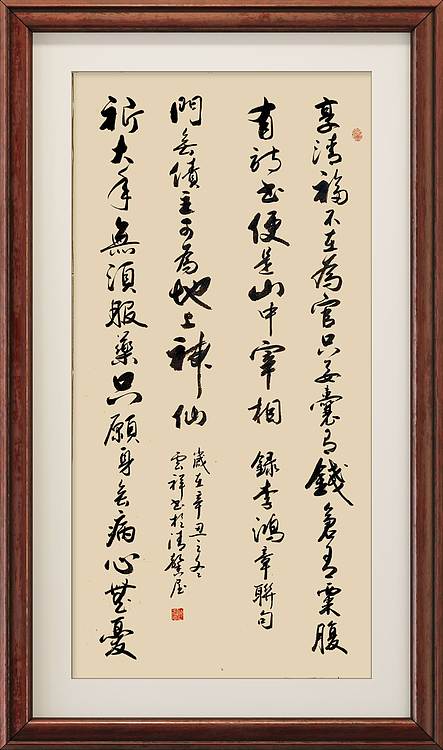 享清福不在為官只要囊有錢倉有粟腹
有詩書便是山中宰相 錄李鴻章聯句
祈大年無須服藥只願身無病心無憂
門無債主可為地上神仙
歲在辛丑之冬
雲祥書於清馨屋